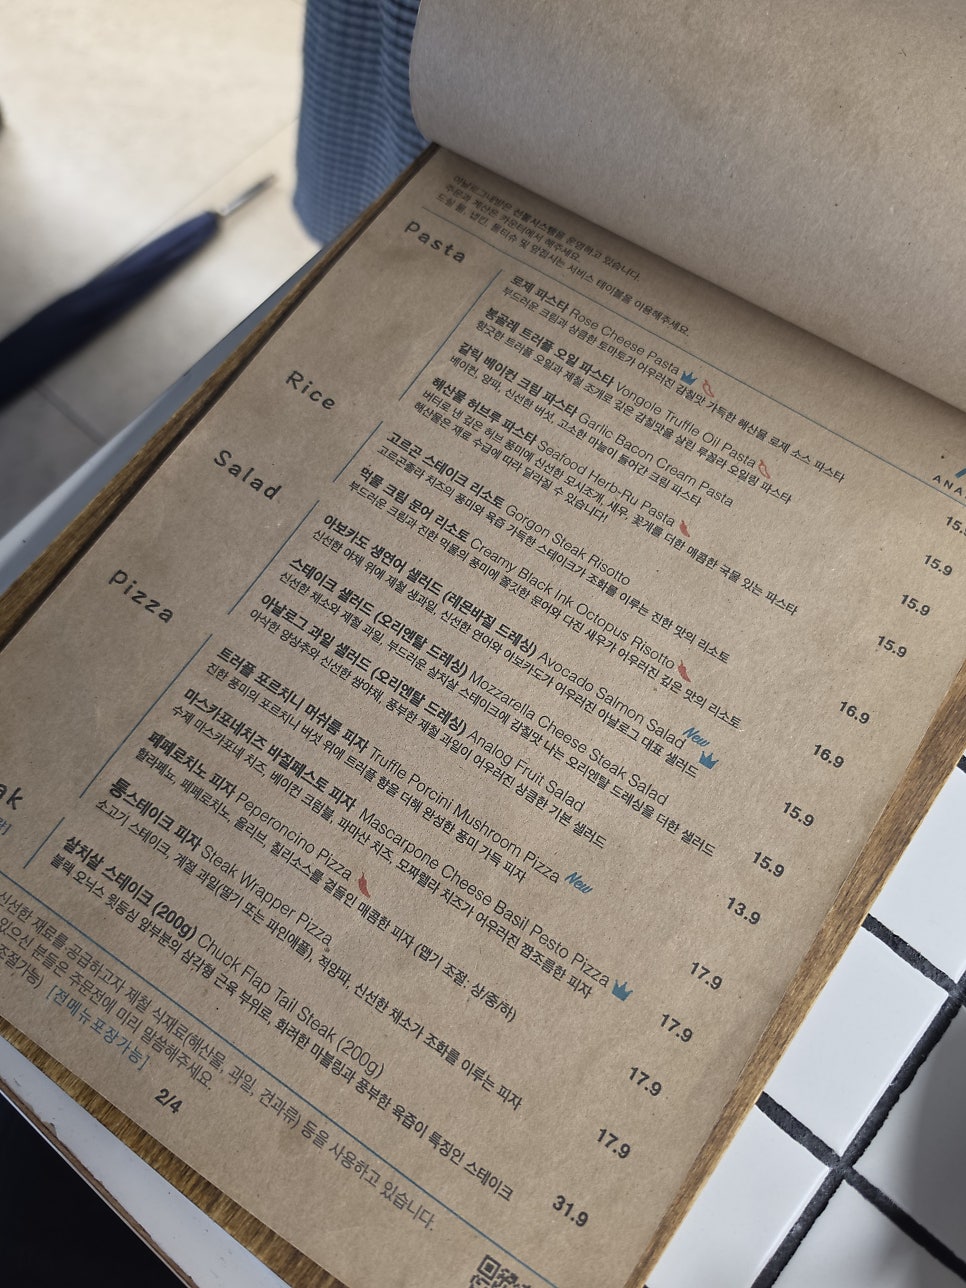 아날로그내방은 선불시스템을 운영하고 있습니다.
주문과 계산은 카운터에서 해주세요.
드실 물, 냅킨, 물티슈 및 앞접시는 서비스 테이블을 이용해주세요.
ANA
Pasta
로제 파스타 Rose Cheese Pasta
부드러운 크림과 상큼한 토마토가 어우러진 감칠맛 가득한 해산물 로제 소스 파스타
15.
봉골레 트러플 오일 파스타 Vongole Truffle Oil Pasta
향긋한 트러플 오일과 제철 조개로 깊은 감칠맛을 살린 루꼴라 오일링 파스타
15.9
갈릭 베이컨 크림 파스타 Garlic Bacon Cream Pasta
베이컨, 양파, 신선한 버섯, 고소한 마늘이 들어간 크림 파스타
15.9
해산물 허브루 파스타 Seafood Herb-Ru Pasta
버터로 낸 깊은 허브 풍미에 신선한 모시조개, 새우, 꽃게를 더한 매콤한 국물 있는 파스타
해산물은 재료 수급에 따라 달라질 수 있습니다!
15.9
Rice
고르곤 스테이크 리소토 Gorgon Steak Risotto
고르곤졸라 치즈의 풍미와 육즙 가득한 스테이크가 조화를 이루는 진한 맛의 리소토
16.9
먹물 크림 문어 리소토 Creamy Black Ink Octopus Risotto
부드러운 크림과 진한 먹물의 풍미에 쫄깃한 문어와 다진 새우가 어우러진 깊은 맛의 리소토
16.9
Salad
아보카도 생연어 샐러드 (레몬바질 드레싱) Avocado Salmon Salad New
신선한 야채 위에 제철 생과일, 신선한 연어와 아보카도가 어우러진 아날로그 대표 샐러드
15.9
스테이크 샐러드 (오리엔탈 드레싱) Mozzarella Cheese Steak Salad
신선한 채소와 제철 과일, 부드러운 살치살 스테이크에 감칠맛 나는 오리엔탈 드레싱을 더한 샐러드
15.9
아날로그 과일 샐러드 (오리엔탈 드레싱) Analog Fruit Salad
아삭한 양상추와 신선한 쌈야채, 풍부한 제철 과일이 어우러진 상큼한 기본 샐러드
13.9
Pizza
트러플 포르치니 머쉬룸 피자 Truffle Porcini Mushroom Pizza New
진한 풍미의 포르치니 버섯 위에 트러플 향을 더해 완성한 풍미 가득 피자
17.9
마스카포네치즈 바질페스토 피자 Mascarpone Cheese Basil Pesto Pizza
수제 마스카포네 치즈, 베이컨 크럼블, 파마산 치즈, 모짜렐라 치즈가 어우러진 짭조름한 피자
17.9
페페로치노 피자 Peperoncino Pizza
할라페뇨, 페페로치노, 올리브, 칠리소스를 곁들인 매콤한 피자 (맵기 조절: 상/중/하)
17.9
통스테이크 피자 Steak Wrapper Pizza
소고기 스테이크, 계절 과일(딸기 또는 파인애플), 적양파, 신선한 채소가 조화를 이루는 피자
17.9
ak
살치살 스테이크 (200g) Chuck Flap Tail Steak (200g)
블랙 오닉스 윗등심 앞부분의 삼각형 근육 부위로, 화려한 마블링과 풍부한 육즙이 특징인 스테이크
31.9
신선한 재료를 공급하고자 제철 식재료(해산물, 과일, 견과류) 등을 사용하고 있습니다.
있으신 분들은 주문전에 미리 말씀해주세요.
조절가능) [전메뉴포장가능]
2/4